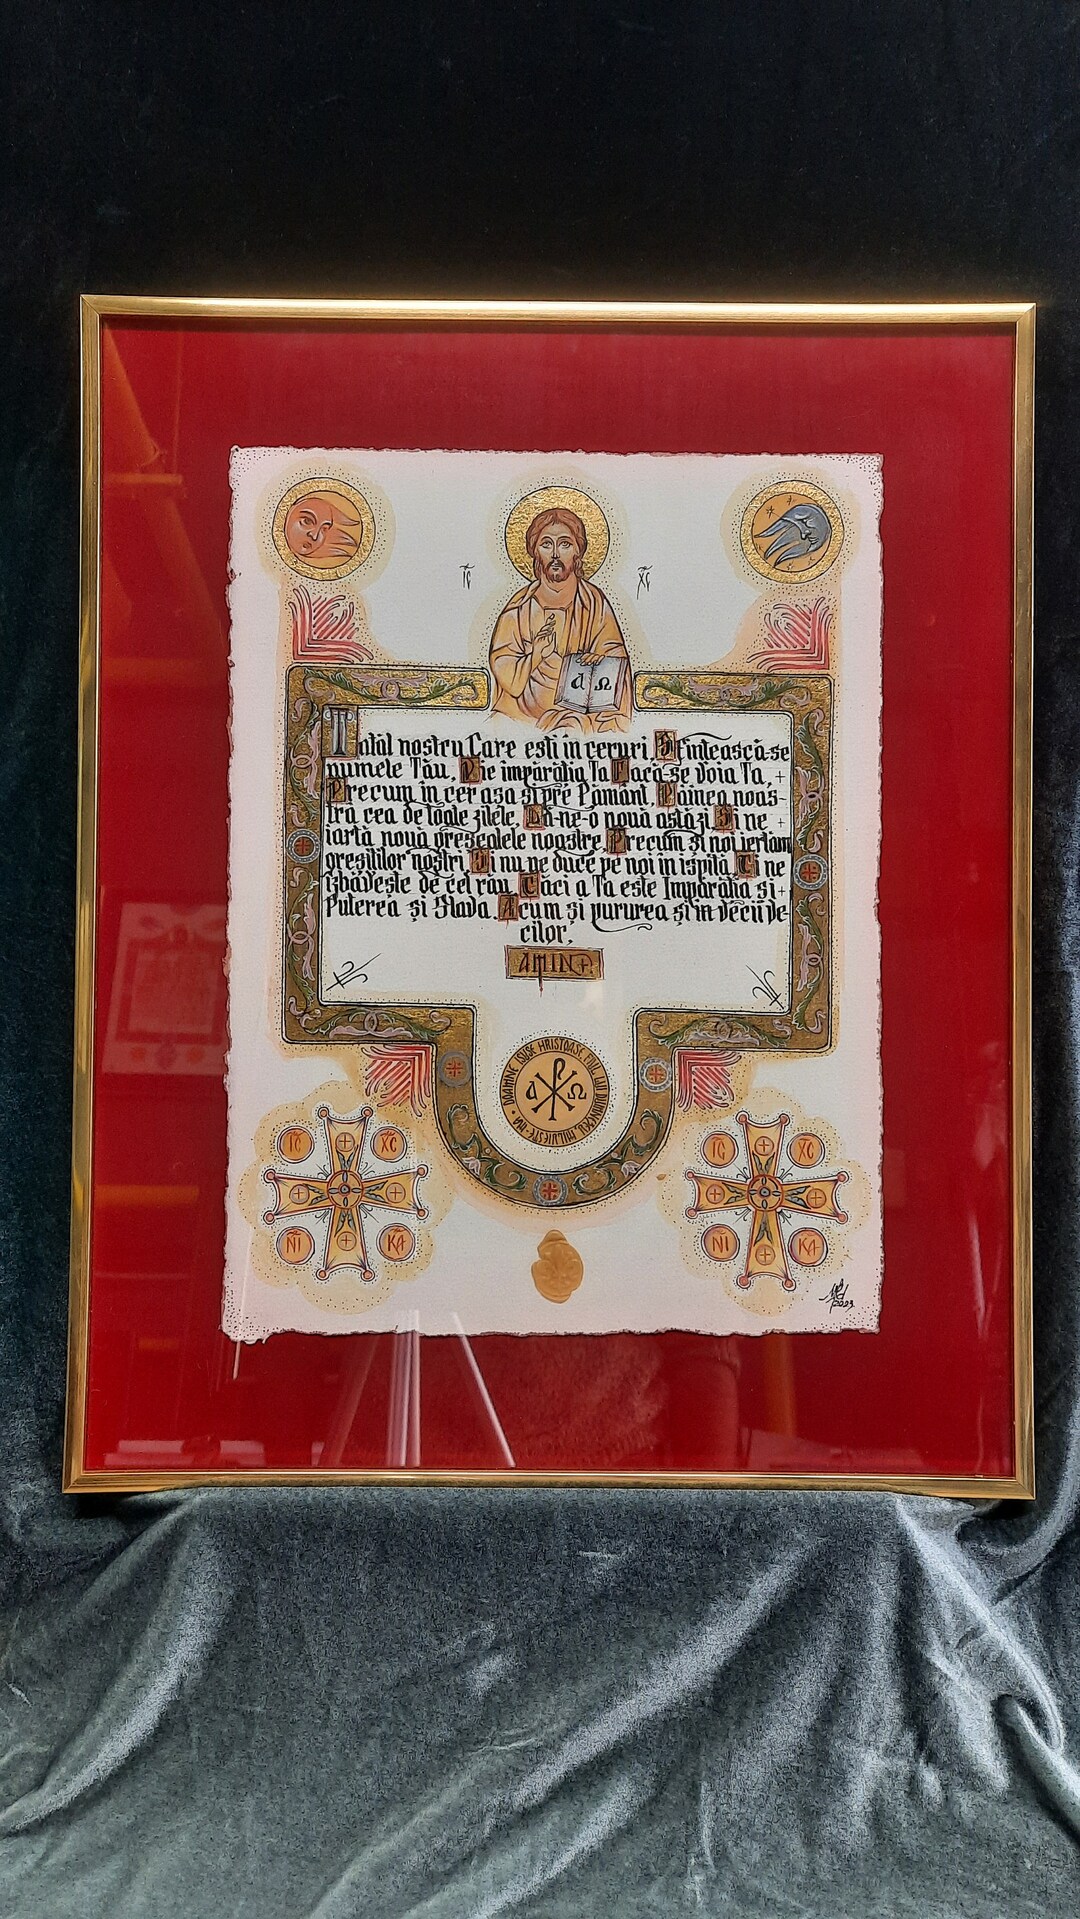 IC XC
α Ω
Tatăl nostru Care ești în ceruri Sfințească-se
numele Tău, Vie împărăția Ta Facă-se voia Ta, +
Precum în cer așa și pre Pământ, Pâinea noas-
tră cea de toate zilele, Dă-ne-o nouă astăzi Și ne +
iartă nouă greșealele noastre, Precum și noi iertăm
greșiților noștri Și nu ne duce pe noi în ispită, Ci ne
izbăvește de cel rău, Căci a Ta este Împărăția și +
Puterea și Slava. Acum și pururea și în vecii ve-
cilor,
AMIN +
DOAMNE IISUSE HRISTOASE, FIUL LUI DUMNEZEU, MILUIEȘTE-MĂ
α Ω
IC XC
NI KA
IC XC
NI KA
2023